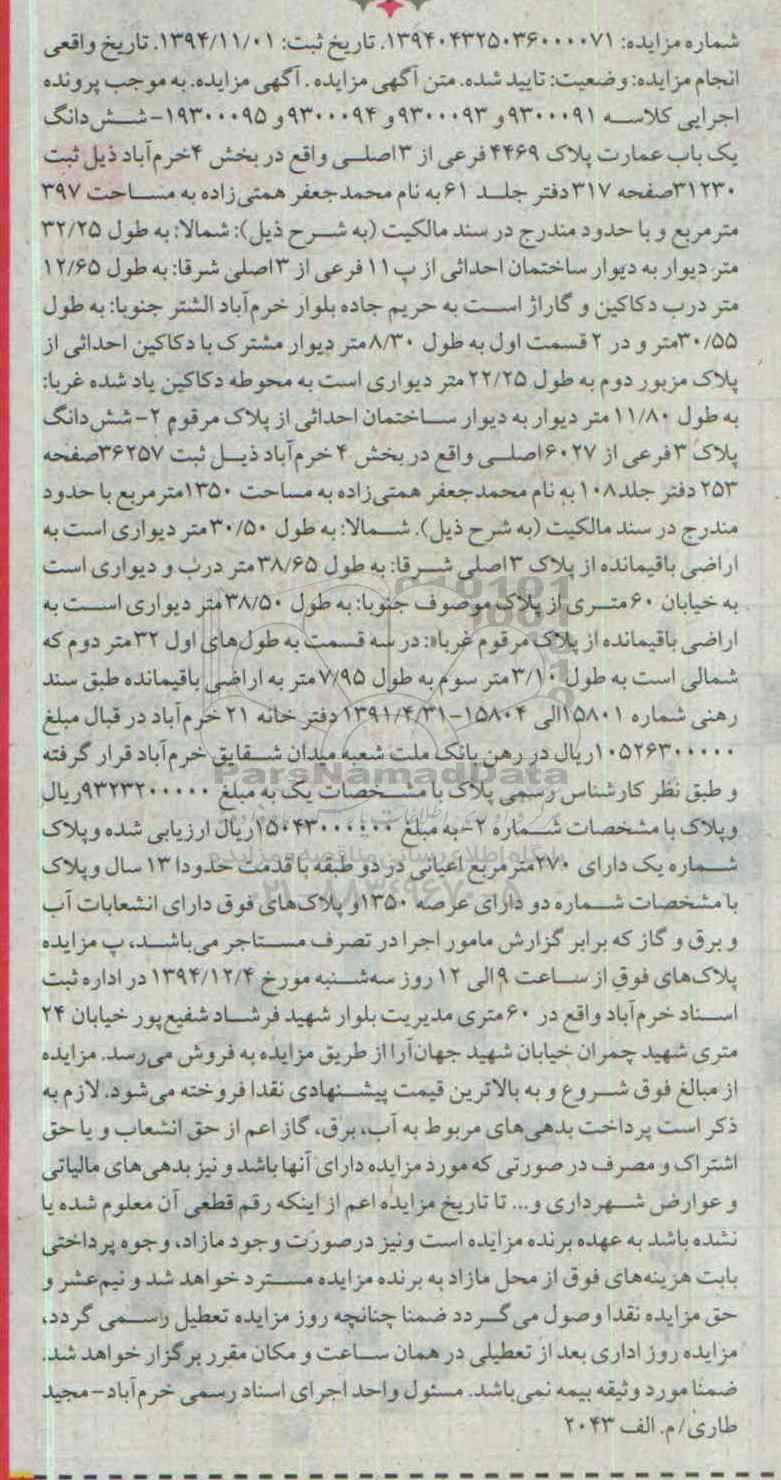 شماره مزایده: ۱۳۹۴۰۴۳۲۵۰۳۶۰۰۰۰۷۱. تاریخ ثبت: ۱۳۹۴/۱۱/۰۱. تاریخ واقعی
انجام مزایده: وضعیت: تایید شده. متن آگهی مزایده. آگهی مزایده. به موجب پرونده
اجرایی کلاسه ۹۳۰۰۰۹۱ و ۹۳۰۰۰۹۳ و ۹۳۰۰۰۹۴ و ۹۳۰۰۰۹۵ ۱-شش‌دانگ
یک باب عمارت پلاک ۴۴۶۹ فرعی از ۳ اصلی واقع در بخش ۴ خرم‌آباد ذیل ثبت
۳۱۲۳۰ صفحه ۳۱۷ دفتر جلد ۶۱ به نام محمدجعفر همتی‌زاده به مساحت ۳۹۷
مترمربع و با حدود مندرج در سند مالکیت (به شرح ذیل): شمالا: به طول ۳۲/۲۵
متر دیوار به دیوار ساختمان احداثی از پ ۱۱ فرعی از ۳ اصلی شرقا: به طول ۱۲/۶۵
متر درب دکاکین و گاراژ است به حریم جاده بلوار خرم‌آباد الشتر جنوبا: به طول
۳۰/۵۵ متر و در ۲ قسمت اول به طول ۸/۳۰ متر دیوار مشترک با دکاکین احداثی از
پلاک مزبور دوم به طول ۲۲/۲۵ متر دیواری است به محوطه دکاکین یاد شده غربا:
به طول ۱۱/۸۰ متر دیوار به دیوار ساختمان احداثی از پلاک مرقوم ۲-شش‌دانگ
پلاک ۳ فرعی از ۶۰۲۷ اصلی واقع در بخش ۴ خرم‌آباد ذیل ثبت ۳۶۲۵۷ صفحه
۲۵۳ دفتر جلد ۱۰۸ به نام محمدجعفر همتی‌زاده به مساحت ۱۳۵۰ مترمربع با حدود
مندرج در سند مالکیت (به شرح ذیل). شمالا: به طول ۳۰/۵۰ متر دیواری است به
اراضی باقیمانده از پلاک ۳ اصلی شرقا: به طول ۳۸/۶۵ متر درب و دیواری است
به خیابان ۶۰ متری از پلاک موصوف جنوبا: به طول ۳۸/۵۰ متر دیواری است به
اراضی باقیمانده از پلاک مرقوم غربا: در سه قسمت به طول‌های اول ۳۲ متر دوم که
شمالی است به طول ۳/۱۰ متر سوم به طول ۷/۹۵ متر به اراضی باقیمانده طبق سند
رهنی شماره ۱۵۸۰۱ الی ۱۵۸۰۴-۱۳۹۱/۴/۳۱ دفترخانه ۲۱ خرم‌آباد در قبال مبلغ
۱۰۵۲۶۳۰۰۰۰۰ ریال در رهن بانک ملت شعبه میدان شقایق خرم‌آباد قرار گرفته
و طبق نظر کارشناس رسمی پلاک با مشخصات یک به مبلغ ۹۳۲۳۲۰۰۰۰۰ ریال
وپلاک با مشخصات شماره ۲-به مبلغ ۱۵۰۴۳۰۰۰۰۰۰ ریال ارزیابی شده وپلاک
شماره یک دارای ۲۷۰ مترمربع اعیانی در دو طبقه با قدمت حدودا ۱۳ سال وپلاک
با مشخصات شماره دو دارای عرصه ۱۳۵۰ و پلاک‌های فوق دارای انشعابات آب
و برق و گاز که برابر گزارش مامور اجرا در تصرف مستاجر می‌باشد، پ مزایده
پلاک‌های فوق از ساعت ۹ الی ۱۲ روز سه‌شنبه مورخ ۱۳۹۴/۱۲/۴ در اداره ثبت
اسناد خرم‌آباد واقع در ۶۰ متری مدیریت بلوار شهید فرشاد شفیع‌پور خیابان ۲۴
متری شهید چمران خیابان شهید جهان‌آرا از طریق مزایده به فروش می‌رسد. مزایده
از مبالغ فوق شروع و به بالاترین قیمت پیشنهادی نقدا فروخته می‌شود. لازم به
ذکر است پرداخت بدهی‌های مربوط به آب، برق، گاز اعم از حق انشعاب و یا حق
اشتراک و مصرف در صورتی که مورد مزایده دارای آنها باشد و نیز بدهی‌های مالیاتی
و عوارض شهرداری و... تا تاریخ مزایده اعم از اینکه رقم قطعی آن معلوم شده یا
نشده باشد به عهده برنده مزایده است ونیز درصورت وجود مازاد، وجوه پرداختی
بابت هزینه‌های فوق از محل مازاد به برنده مزایده مسترد خواهد شد و نیم‌عشر و
حق مزایده نقدا وصول می‌گردد ضمنا چنانچه روز مزایده تعطیل رسمی گردد،
مزایده روز اداری بعد از تعطیلی در همان ساعت و مکان مقرر برگزار خواهد شد.
ضمنا مورد وثیقه بیمه نمی‌باشد. مسئول واحد اجرای اسناد رسمی خرم‌آباد-مجید
طاری/ م. الف ۲۰۴۳
ParsNamadData